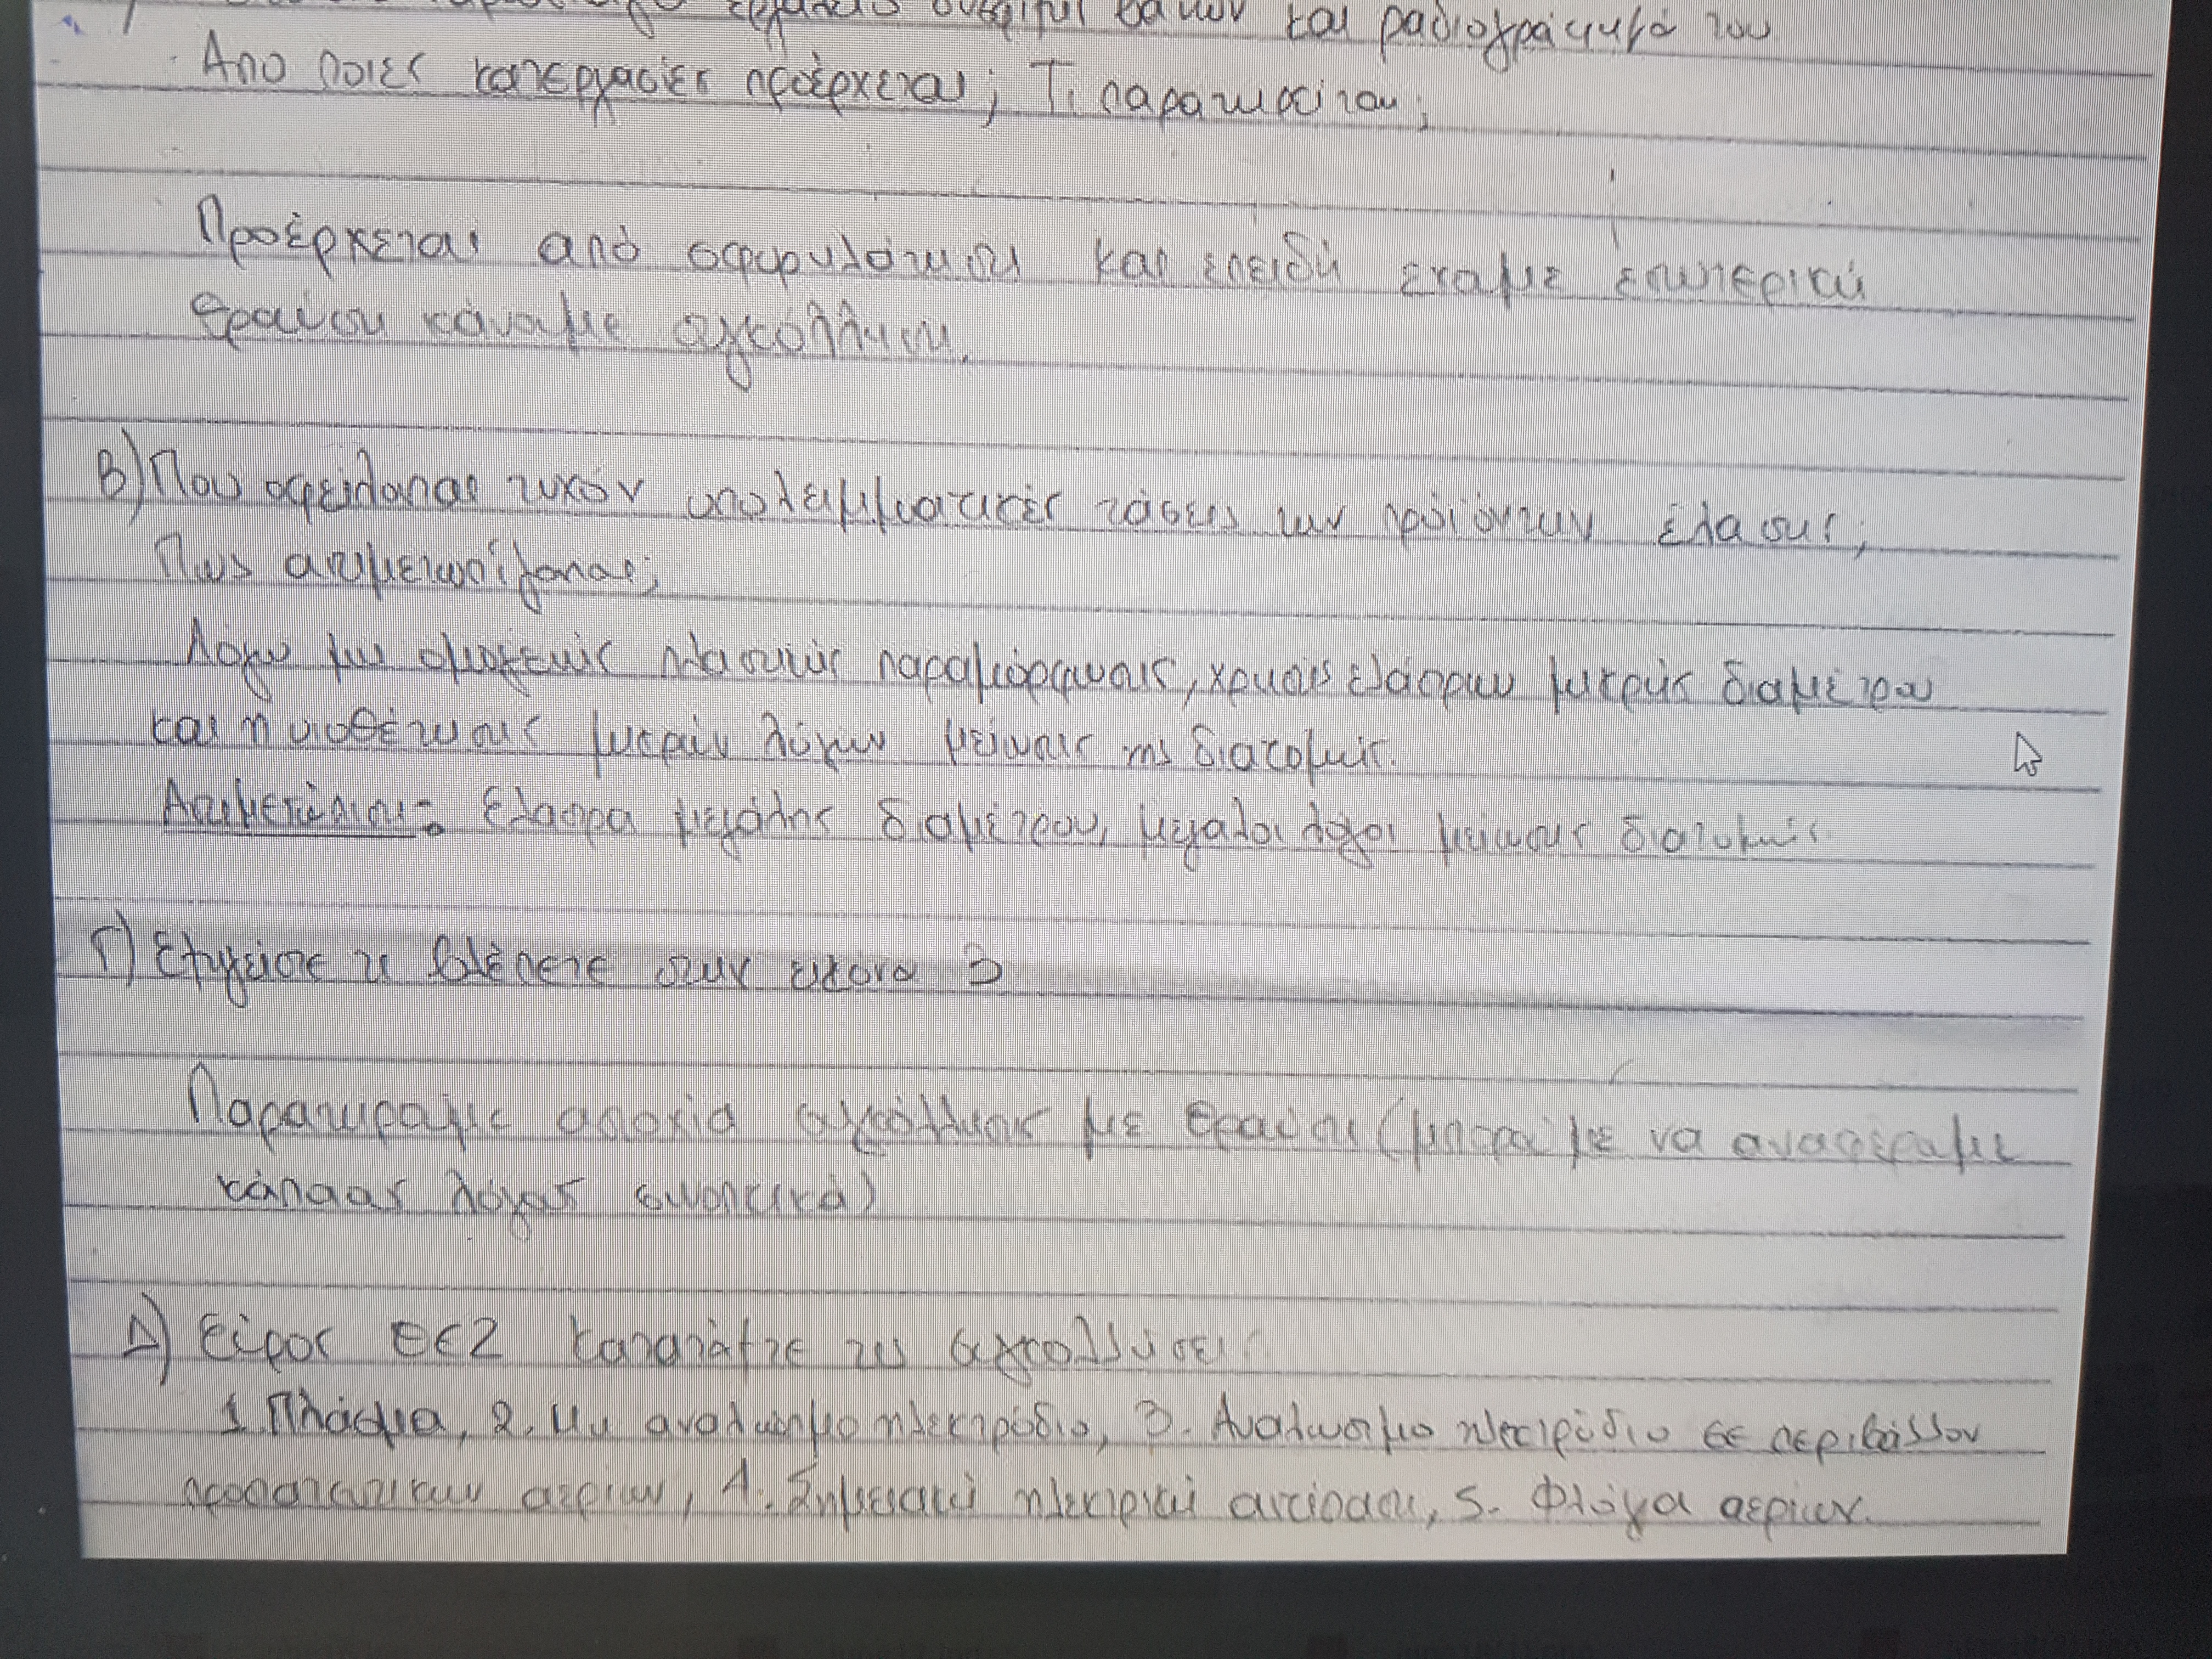 και ραδιογράφημά του
Απο ποιες κατεργασίες προέρχεται; Τι παρατηρείται;
Προέρχεται από σφυρηλάτηση και επειδή εχαμε εσωτερική
θραύση κάναμε συγκόλληση.
Β) Που οφείλονται τυχόν υπολειμματικές τάσεις των προϊόντων έλασης;
Πως αντιμετωπίζονται;
Λόγω μη ομογενούς πλαστικής παραμόρφωσης, χρήσης ελάστρων μικρής διαμέτρου
και η υιοθέτησης μικρών λόγων μείωσης της διατομής.
Αντιμετώπιση: Ελαστρα μεγάλης διαμέτρου, μεγαλοι λόγοι μείωσης διατομής.
Γ) Εξηγείστε τι βλέπετε στην εικονα 3
Παρατηρουμε αστοχία συγκόλλησης με θραυση (μπορουμε να αναφέρουμε
κάποιους λόγους συνοπτικά)
Δ) Εύρος ΘΕΖ Καταταξτε τις συγκολλήσεις
1. Πλάσμα, 2. Μη αναλώσιμο ηλεκτρόδιο, 3. Αναλωσιμο ηλεκτρόδιο σε περιβάλλον
προστατευτικων αεριων, 4. Σημειακή ηλεκτρική αντίσταση, 5. Φλόγα αερίων.